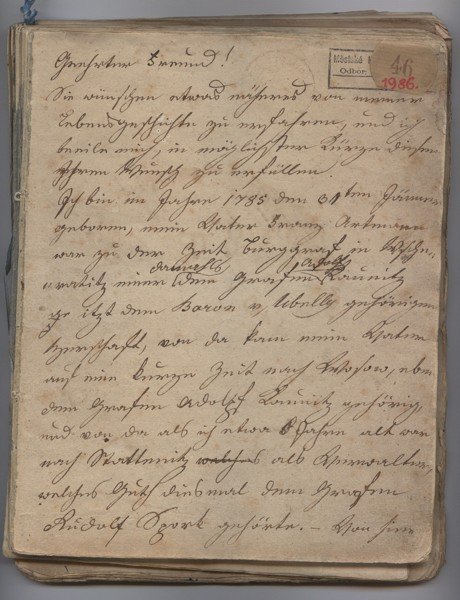 Geehrter Freund!
Městské
Odbor.
46
1986.
Sie wünschen etwas näheres von meiner
Lebensgeschichte zu erfahren, und ich
beeile mich, in möglichster Kürze diesen
Ihren Wunsch zu erfüllen.
Ich bin im Jahre 1785 den 31ten Jänner
geboren, mein Vater Franz Artmann
war zu der Zeit Burggraf in
damahls Adolf
einer dem Grafen Kaunitz
itzt dem Baron v. Ubelly gehörigen
Herrschaft, von da kam mein Vater
auf eine kurze Zeit nach eben
dem Grafen Adolf Kaunitz gehörig,
und von da als ich etwa 8 Jahre alt war
nach Stattenitz welches als Verwalter,
welches Gut diesmal dem Grafen
Rudolf Spork gehörte. – Von